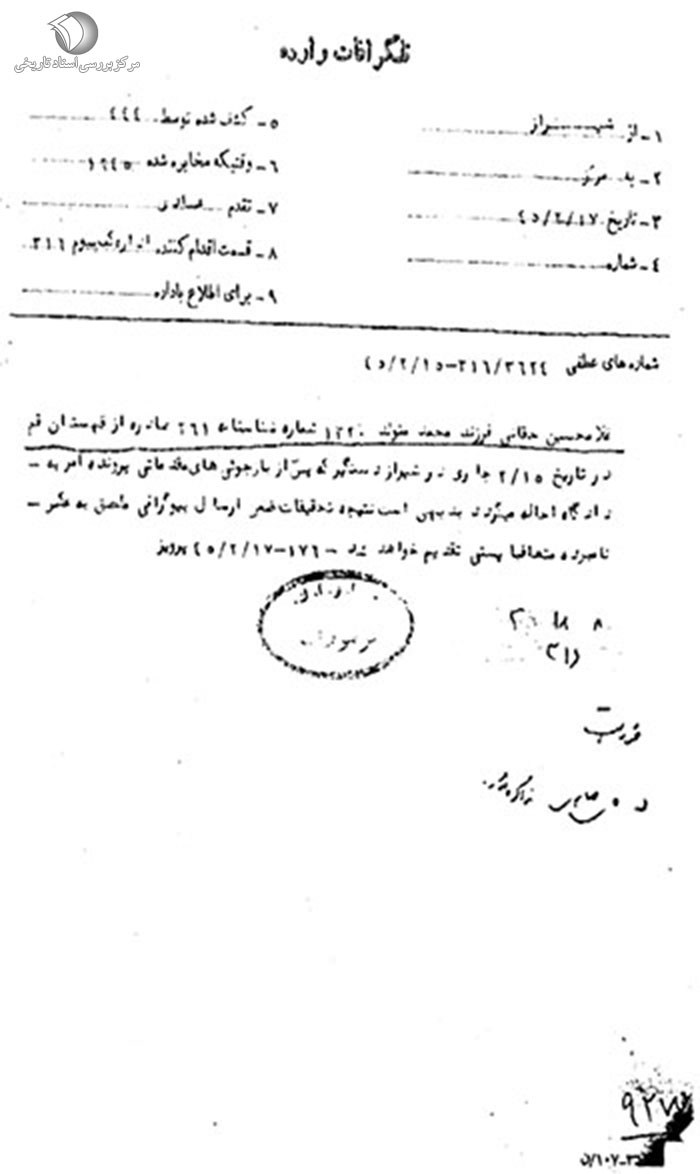 مرکز بررسی اسناد تاریخی
تلگرافات وارده
۱ـ از شیراز
۲ـ به مرکز
۳ـ تاریخ ۴۵/۲/۱۷
۴ـ شماره
۵ـ کشف شده توسط ۴۴۴
۶ـ وقتیکه مخابره شده ۱۶۴۵
۷ـ تقدم عادی
۸ـ قسمت اقدام کننده اداره کل سوم ۳۱۶
۹ـ برای اطلاع باداره
شماره های عطفی ۳۱۶/۳۶۲۴ـ۴۵/۲/۱۵
غلامحسین حقانی فرزند محمد متولد ۱۳۲۰ شماره شناسنامه ۲۶۱ صادره از قم
در تاریخ ۲/۱۵ جاری در شیراز دستگیر که پس از بازجوئی های مقدماتی پرونده امر به ـ
دادگاه احاله میگردد بدیهی است نتیجه تحقیقات ضمن ارسال بیوگرافی ملصق به عکس ـ
نامبرده متعاقبا پستی تقدیم خواهد شد ـ ۱۷۶ـ۴۵/۲/۱۷ پرویز
۳۱۶
فوریت
۹۲۷